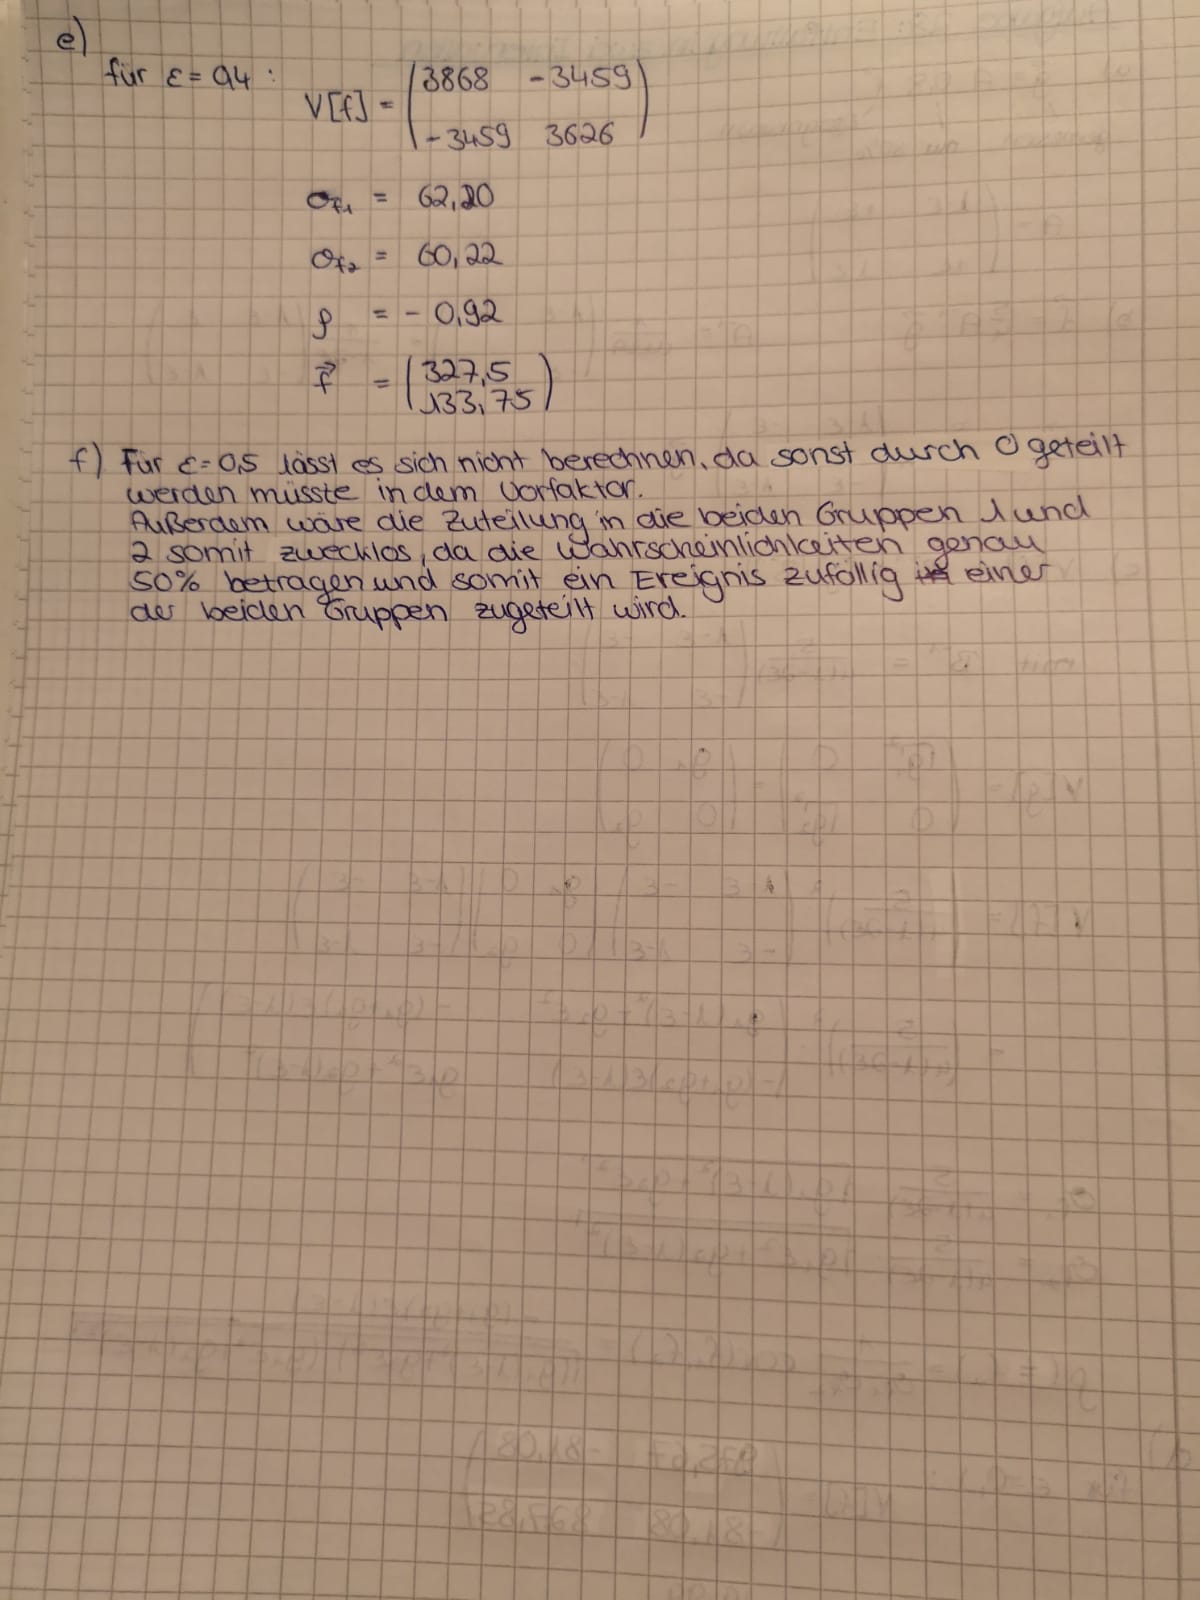 e)
für ε = 0,4 :
V[f] = ( 3868 -3459
-3459 3626 )
σf1 = 62,20
σf2 = 60,22
ρ = - 0,92
f⃗ = ( 327,5
133,75 )
f) Für ε=0,5 lässt es sich nicht berechnen, da sonst durch 0 geteilt
werden müsste in dem Vorfaktor.
Außerdem wäre die Zuteilung in die beiden Gruppen 1 und
2 somit zwecklos, da die Wahrscheinlichkeiten genau
50% betragen und somit ein Ereignis zufällig einer
der beiden Gruppen zugeteilt wird.